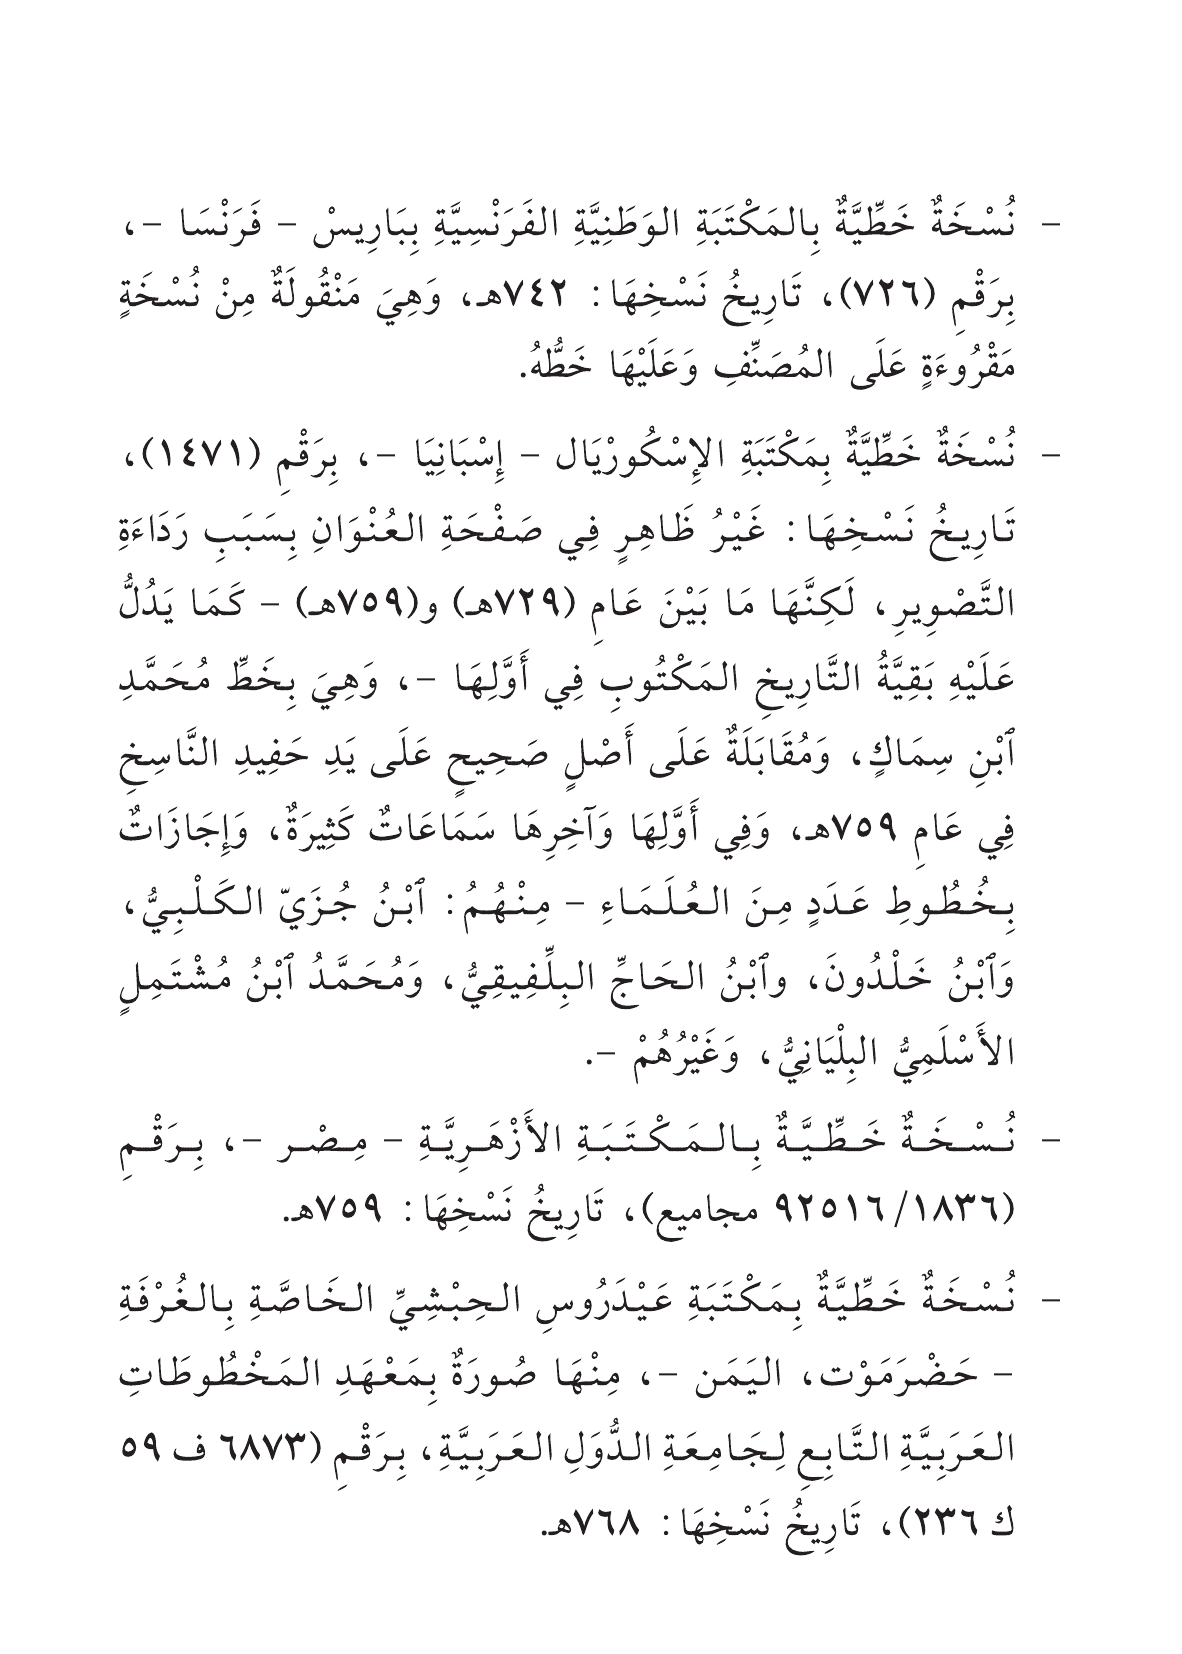 - نُسْخَةٌ خَطِّيَّةٌ بِالمَكْتَبَةِ الوَطَنِيَّةِ الفَرَنْسِيَّةِ بِبَارِيسْ - فَرَنْسَا -،
بِرَقْمِ (٧٢٦)، تَارِيخُ نَسْخِهَا: ٧٤٢هـ، وَهِيَ مَنْقُولَةٌ مِنْ نُسْخَةٍ
مَقْرُوءَةٍ عَلَى المُصَنِّفِ وَعَلَيْهَا خَطُّهُ.
- نُسْخَةٌ خَطِّيَّةٌ بِمَكْتَبَةِ الإِسْكُورْيَال - إِسْبَانِيَا -، بِرَقْمِ (١٤٧١)،
تَارِيخُ نَسْخِهَا: غَيْرُ ظَاهِرٍ فِي صَفْحَةِ العُنْوَانِ بِسَبَبِ رَدَاءَةِ
التَّصْوِيرِ، لَكِنَّهَا مَا بَيْنَ عَامِ (٧٢٩هـ) و(٧٥٩هـ) - كَمَا يَدُلُّ
عَلَيْهِ بَقِيَّةُ التَّارِيخِ المَكْتُوبِ فِي أَوَّلِهَا -، وَهِيَ بِخَطِّ مُحَمَّدِ
ٱبْنِ سِمَاكٍ، وَمُقَابَلَةٌ عَلَى أَصْلٍ صَحِيحٍ عَلَى يَدِ حَفِيدِ النَّاسِخِ
فِي عَامِ ٧٥٩هـ، وَفِي أَوَّلِهَا وَآخِرِهَا سَمَاعَاتٌ كَثِيرَةٌ، وَإِجَازَاتٌ
بِخُطُوطِ عَدَدٍ مِنَ العُلَمَاءِ - مِنْهُمُ: ٱبْنُ جُزَيّ الكَلْبِيُّ،
وَٱبْنُ خَلْدُونَ، وٱبْنُ الحَاجِّ البِلِّفِيقِيُّ، وَمُحَمَّدُ ٱبْنُ مُشْتَمِلٍ
الأَسْلَمِيُّ البِلْيَانِيُّ، وَغَيْرُهُمْ -.
- نُسْخَةٌ خَطِّيَّةٌ بِالمَكْتَبَةِ الأَزْهَرِيَّةِ - مِصْر -، بِرَقْمِ
(١٨٣٦/ ٩٢٥١٦ مجاميع)، تَارِيخُ نَسْخِهَا: ٧٥٩هـ.
- نُسْخَةٌ خَطِّيَّةٌ بِمَكْتَبَةِ عَيْدَرُوسِ الحِبْشِيِّ الخَاصَّةِ بِالغُرْفَةِ
- حَضْرَمَوْت، اليَمَن -، مِنْهَا صُورَةٌ بِمَعْهَدِ المَخْطُوطَاتِ
العَرَبِيَّةِ التَّابِعِ لِجَامِعَةِ الدُّوَلِ العَرَبِيَّةِ، بِرَقْمِ (٦٨٧٣ ف ٥٩
ك ٢٣٦)، تَارِيخُ نَسْخِهَا: ٧٦٨هـ.